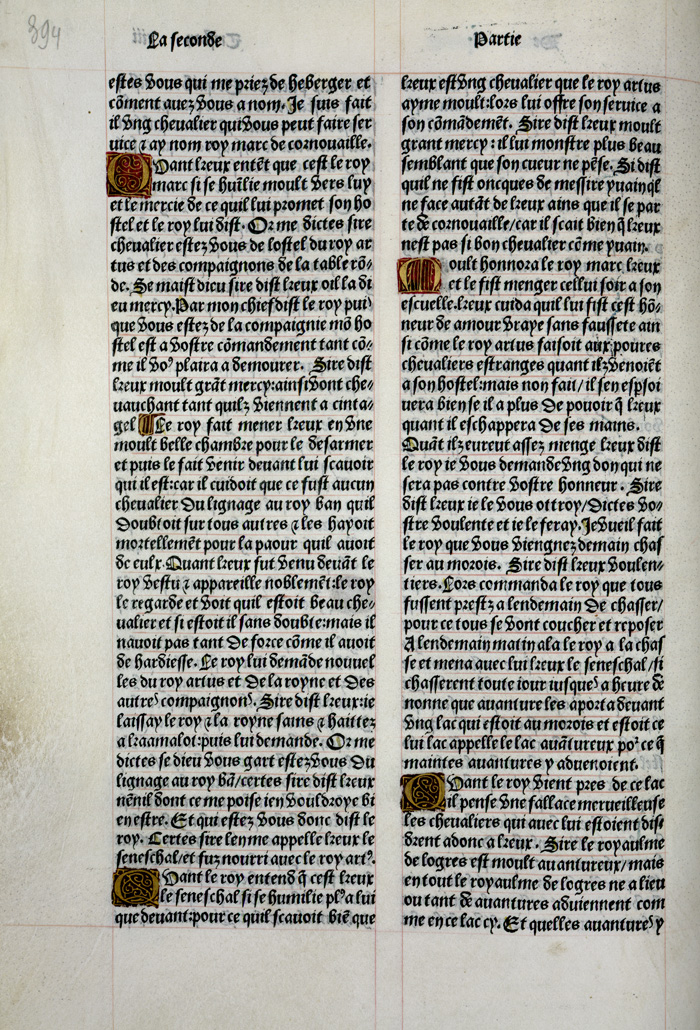 394
La seconde
Partie
estes vous qui me priez de heberger et
cõment auez vous a nom. Je suis fait
il vng cheualier qui vous peut faire ser
uice ⁊ ay nom roy marc de cornouaille.
Quant kreux entẽt que cest le roy
marc si se humilie moult vers luy
et le mercie de ce quil lui promet son ho
stel et le roy lui dist. Or me dictes sire
cheualier estez vous de lostel du roy ar
tus et des compaignons de la table rõ-
de. Se maist dieu sire dist kreux oil la di
eu mercy. Par mon chief dist le roy puis
que vous estez de la compaignie mõ ho
stel est a vostre cõmandement tant cõ-
me il vo⁹ plaira a demourer. Sire dist
kreux moult grãt mercy: ainsi vont che-
uauchant tant quilz viennent a cinta-
gel Le roy fait mener kreux en vne
moult belle chambre pour le desarmer
et puis le fait venir deuant lui scauoir
qui il est: car il cuidoit que ce fust aucun
cheualier du lignage au roy ban quil
doubtoit sur tous autres ⁊ les hayoit
mortellemẽt pour la paour quil auoit
de eulx. Quant kreux fut venu deuãt le
roy vestu ⁊ appareille noblemẽt: le roy
le regarde et voit quil estoit beau che-
ualier et si estoit il sans doubte: mais il
nauoit pas tant de force cõme il auoit
de hardiesse. Le roy lui demãde nouuel
les du roy artus et de la royne et des
autres compaignons. Sire dist kreux: ie
laissay le roy ⁊ la royne sains ⁊ haittez
a kraamalot: puis lui demande. Or me
dictes se dieu vous gart estez vous du
lignage au roy bã/ certes sire dist kreux
nẽnil dont ce me poise ien vouldroye bi
en estre. Et qui estez vous donc dist le
roy. Certes sire len me appelle kreux le
seneschal/ et fuz nourri auec le roy art⁹.
Quant le roy entend q̃ cest kreux
le seneschal si se humilie pl⁹ a lui
que deuant: pour ce quil scauoit biẽ que
kreux est vng cheualier que le roy artus
ayme moult: lors lui offre son seruice a
son cõmãdemẽt. Sire dist kreux moult
grant mercy: il lui monstre plus beau
semblant que son cueur ne pẽse. Si dist
quil ne fist oncques de messire yuain ql̃
ne face autãt de kreux ains que il se par
te de cornouaille/ car il scait bien q̃ kreux
nest pas si bon cheualier cõme yuain.
Moult honnora le roy marc kreux
et le fist menger cellui soir a son
escuelle. kreux cuida quil lui fist cest hõ-
neur de amour vraye sans faussete ain
si cõme le roy artus faisoit aux poures
cheualiers estranges quant ilz venoiẽt
a son hostel: mais non fait/ il sen esp̃soi
uera bien se il a plus de pouoir q̃ kreux
quant il eschappera de ses mains.
Quãt ilz eurent assez menge kreux dist
le roy ie vous demande vng don qui ne
sera pas contre vostre honneur. Sire
dist kreux ie le vous ottroy/ Dictes vo-
stre voulente et ie le feray. Je vueil fait
le roy que vous viengnez demain chas
ser au morois. Sire dist kreux voulen-
tiers. Lors commanda le roy que tous
fussent prestz a lendemain de chasser/
pour ce tous se vont coucher et reposer
A lendemain matin ala le roy a la chas
se et mena auec lui kreux le seneschal/ si
chasserent toute iour iusques a heure de
nonne que auanture les aporta deuant
vng lac qui estoit au morois et estoit ce
lui lac appelle le lac auãtureux po² ce q̃
maintes auantures y aduenoient.
Quant le roy vient pres de ce lac
il pense vne fallace merueilleuse
les cheualiers qui auec lui estoient dist
drent adonc a kreux. Sire le royaulme
de logres est moult auantureux/ mais
en tout le royaulme de logres ne a lieu
ou tant de auantures aduiennent com
me en ce lac cy. Et quelles auantures y